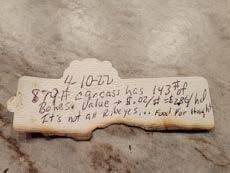 4-10-22
879# carcass has 143# of
Bones. Value → $.02/# = $286/hd
It's not all Ribeyes... Food For thought